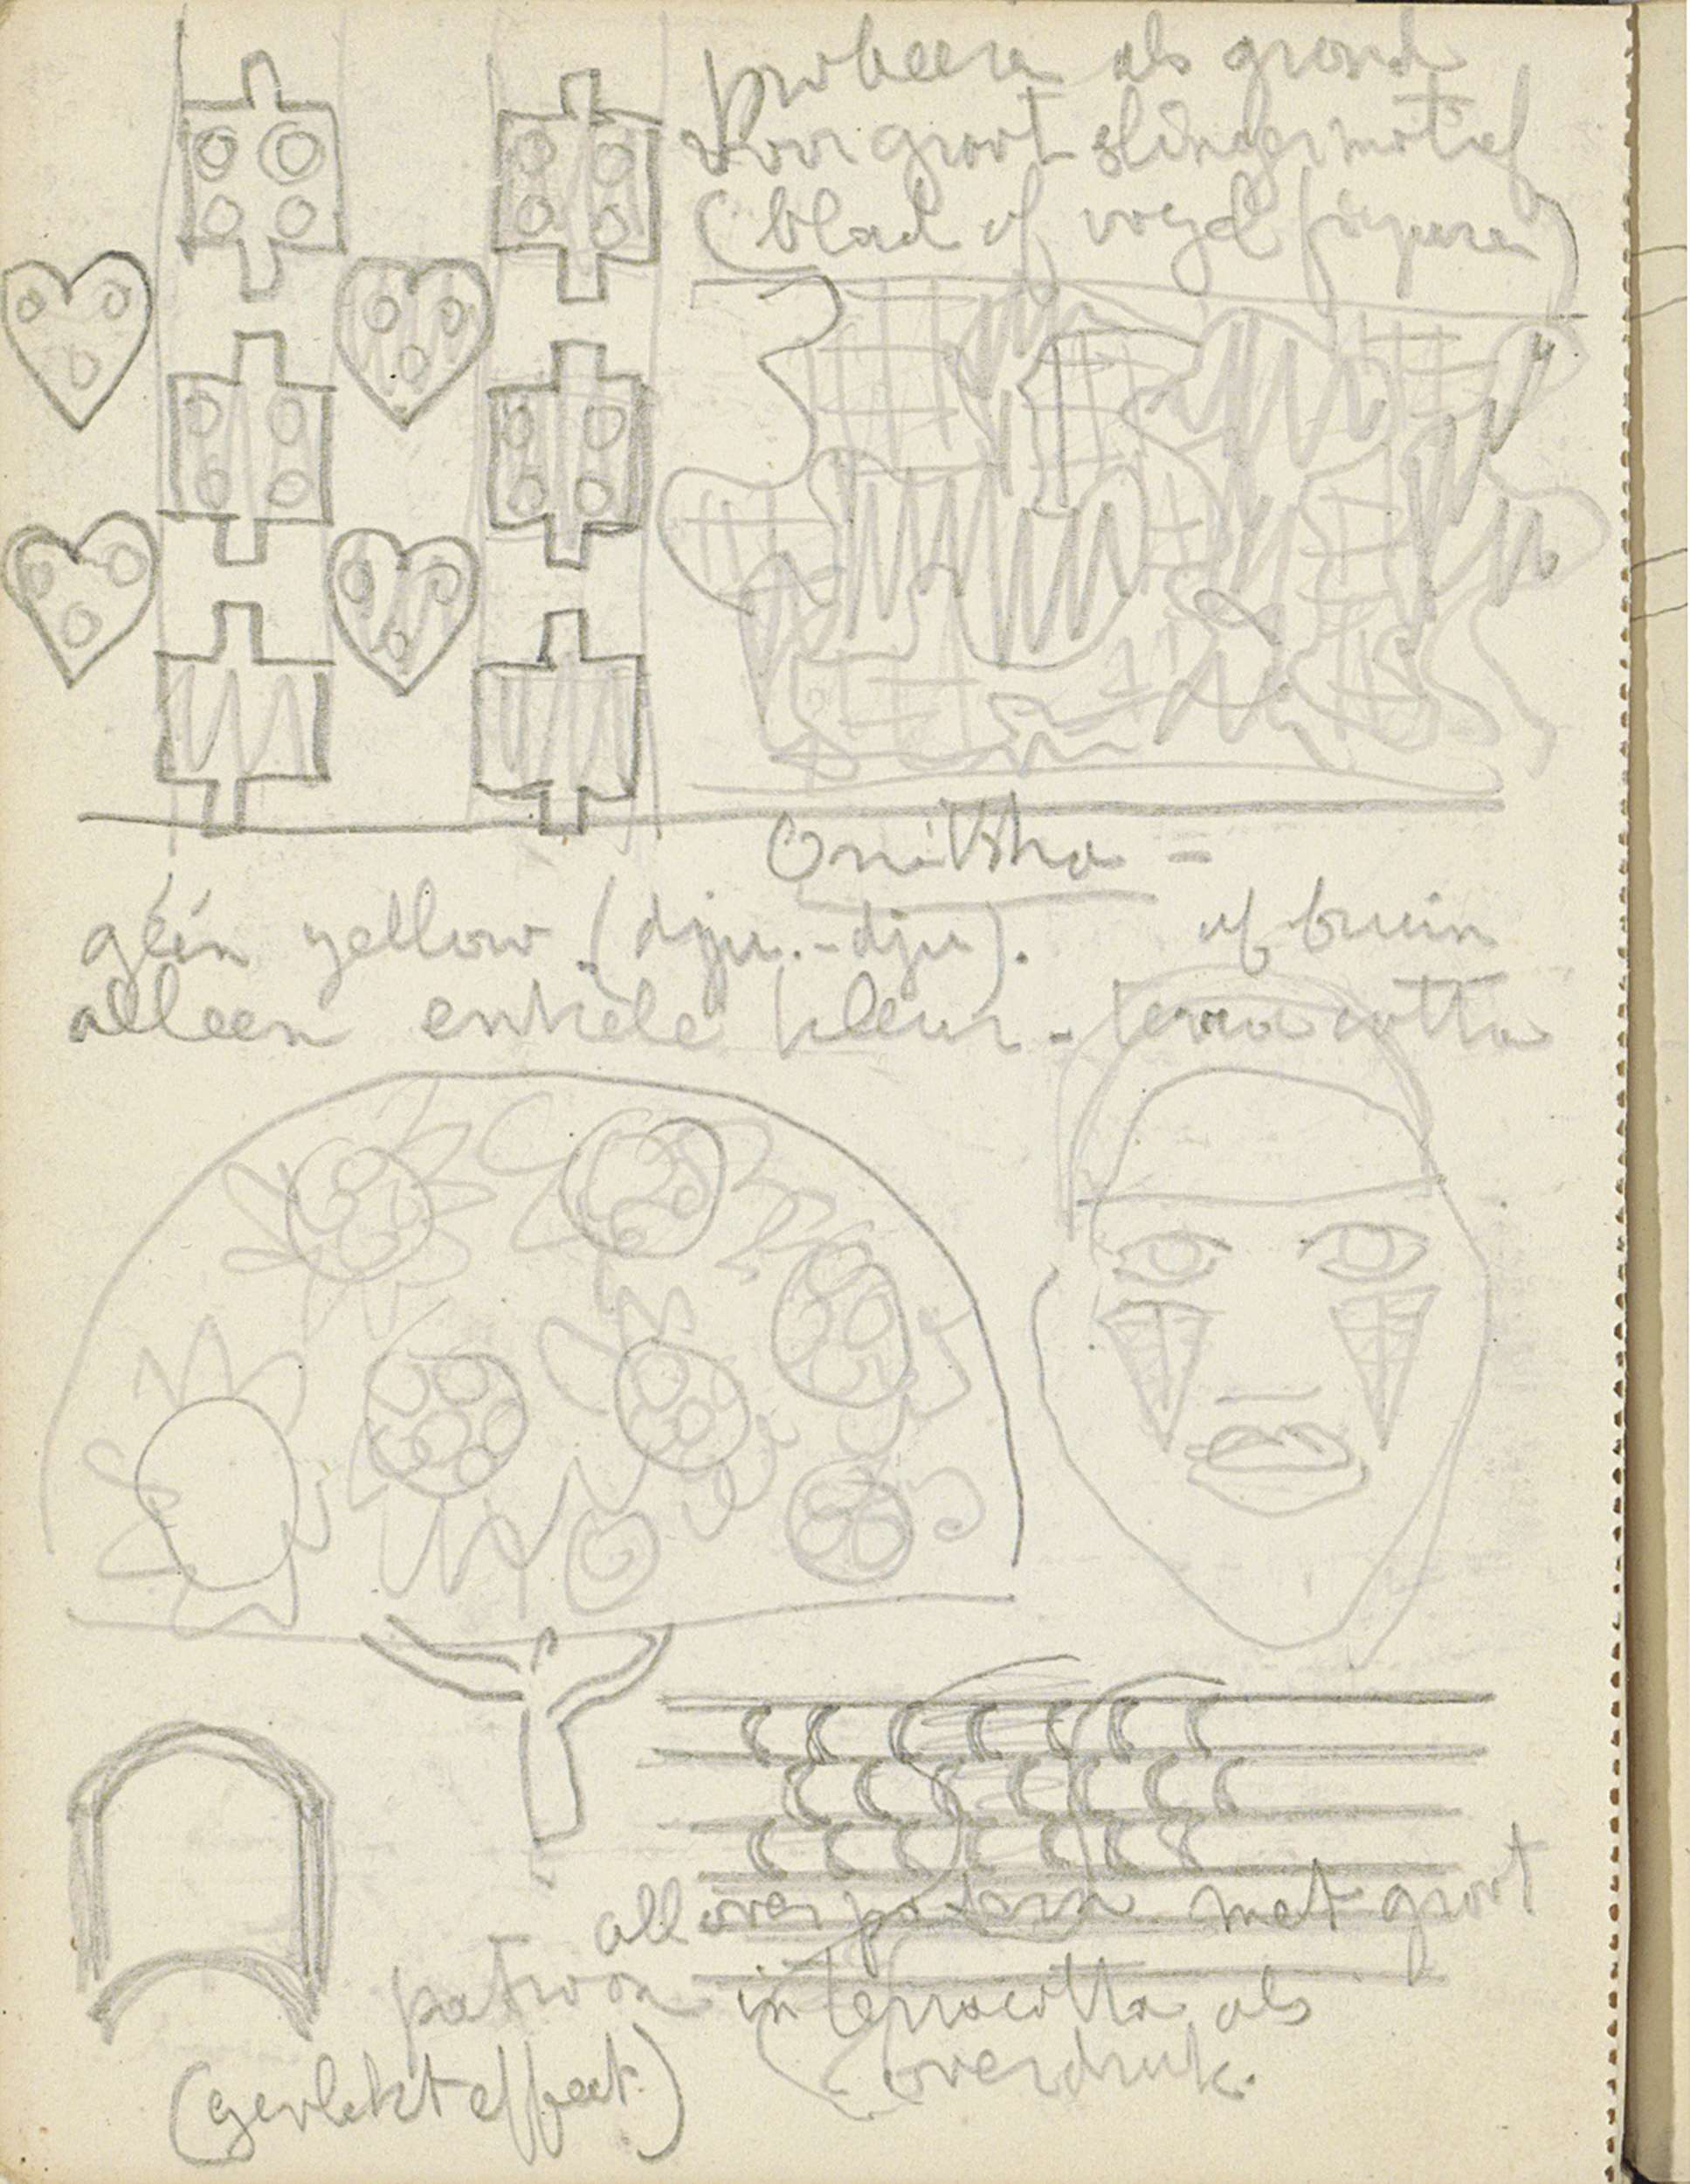 proberen als grond
voor groot slingermotief
(blad of vogel figuren)
Onitsha =
géén yellow (dju-dju). of bruin
alleen enkele kleur - terra cotta
all over patroon met groot
patroon in terracotta als
(gevlekt effect.) overdruk.